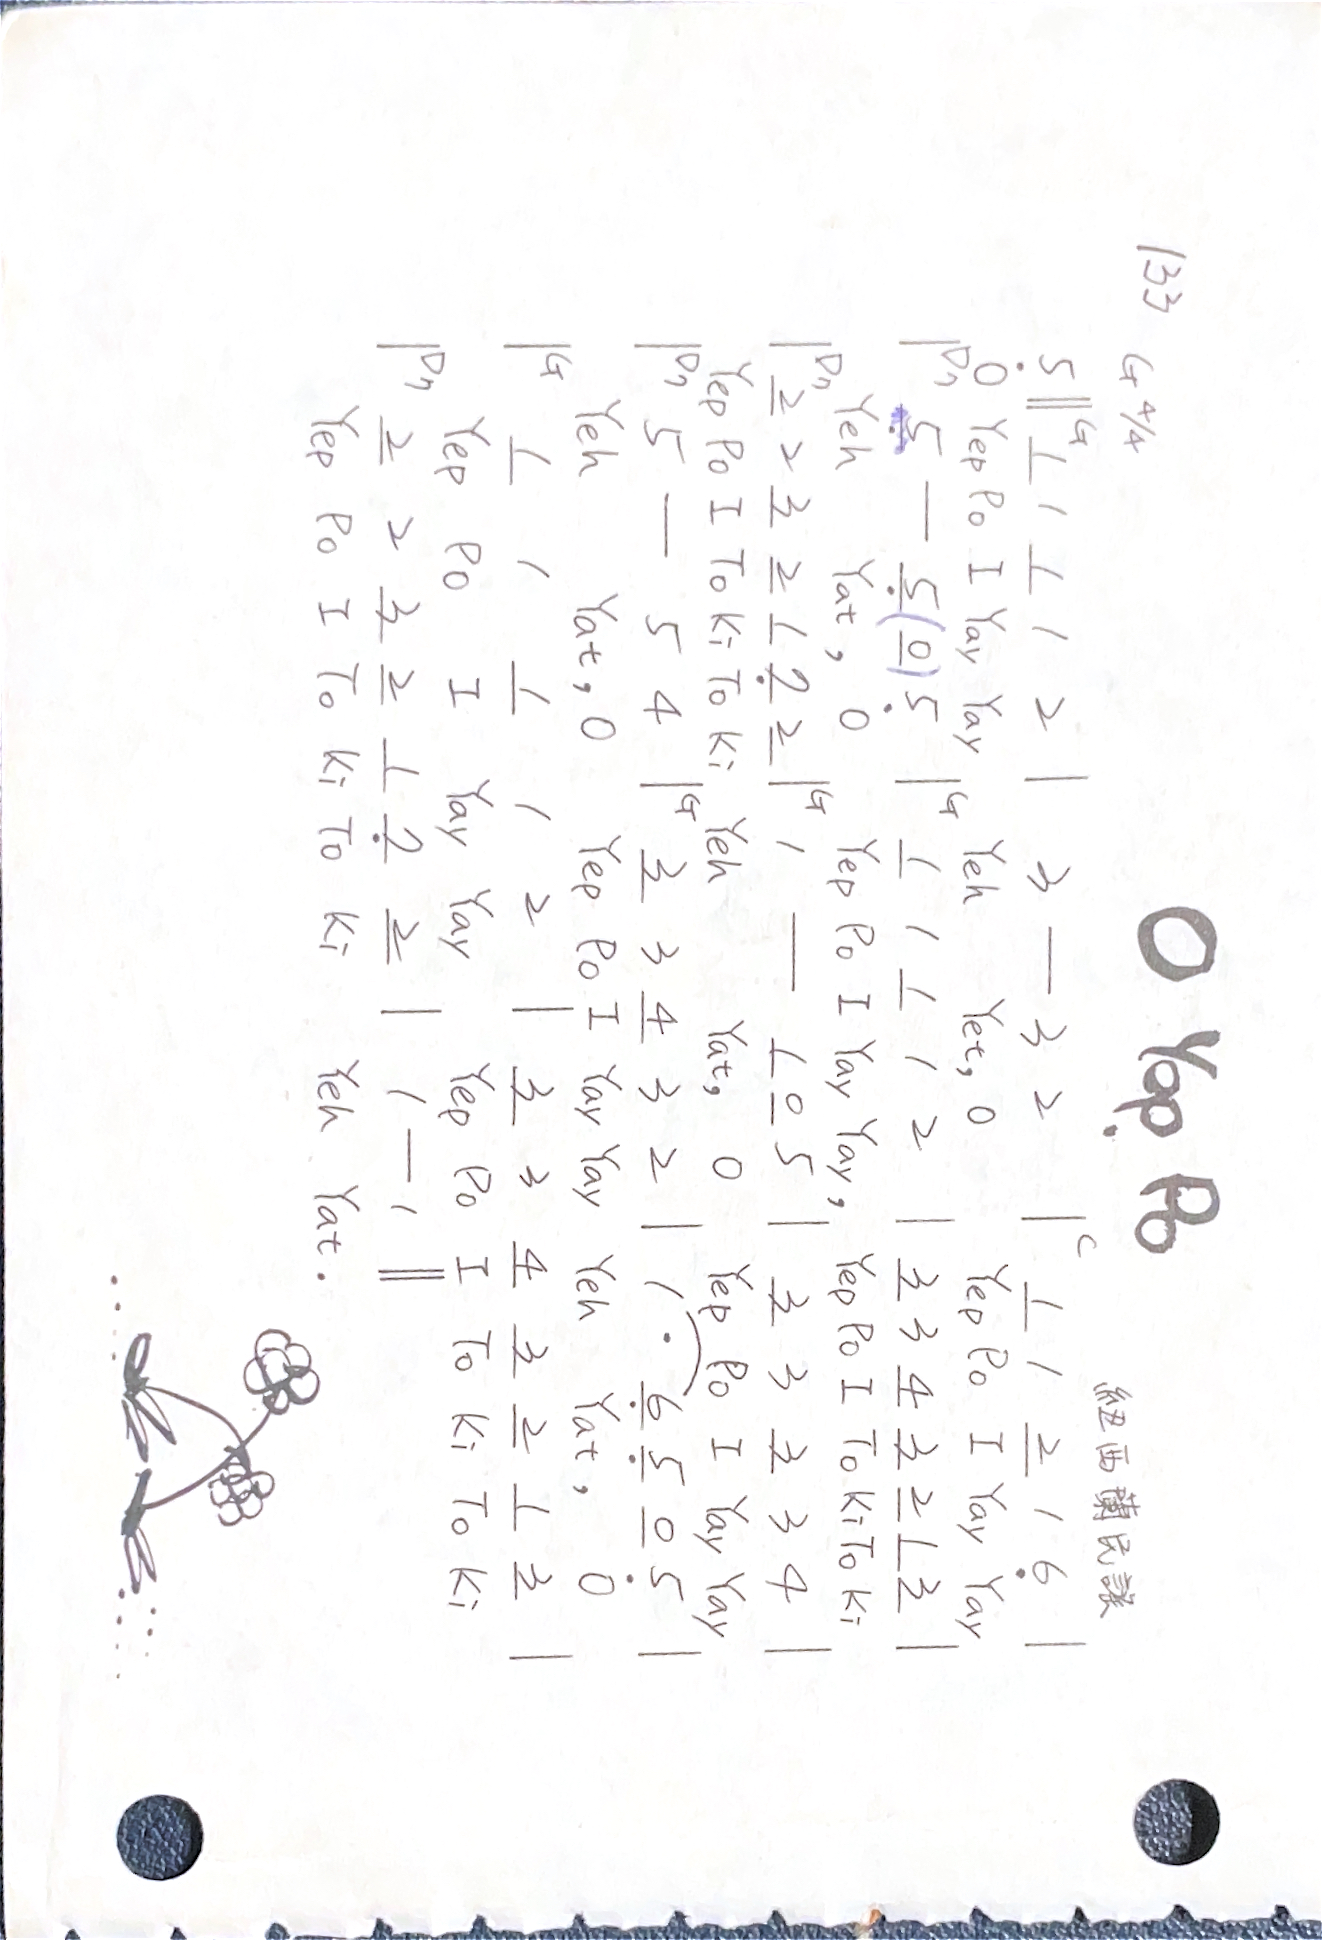 O Yep Po
133
G 4/4
紐西蘭民謠
5 ‖ G 1 1 1 1 2 | 3 — 3 2 | C 1 1 2 1 6 |
O Yep Po I Yay Yay Yeh Yet, O Yep Po I Yay Yay
| D7 5 — 5 (0) 5 | G 1 1 1 1 2 | 3 3 4 3 2 1 3 |
Yeh Yat, O Yep Po I Yay Yay, Yep Po I To Ki To Ki
| D7 2 2 3 2 1 7 2 | G 1 — 1 0 5 | 3 3 3 3 4 |
Yep Po I To Ki To Ki Yeh Yat, O Yep Po I Yay Yay
| D7 5 — 5 4 | G 3 3 4 3 2 | 1 · 6 5 0 5 |
Yeh Yat, O Yep Po I Yay Yay Yeh Yat, O
| G 1 1 1 1 2 | 3 3 4 3 2 1 3 |
Yep Po I Yay Yay Yep Po I To Ki To Ki
| D7 2 2 3 2 1 7 2 | 1 — 1 ‖
Yep Po I To Ki To Ki Yeh Yat.